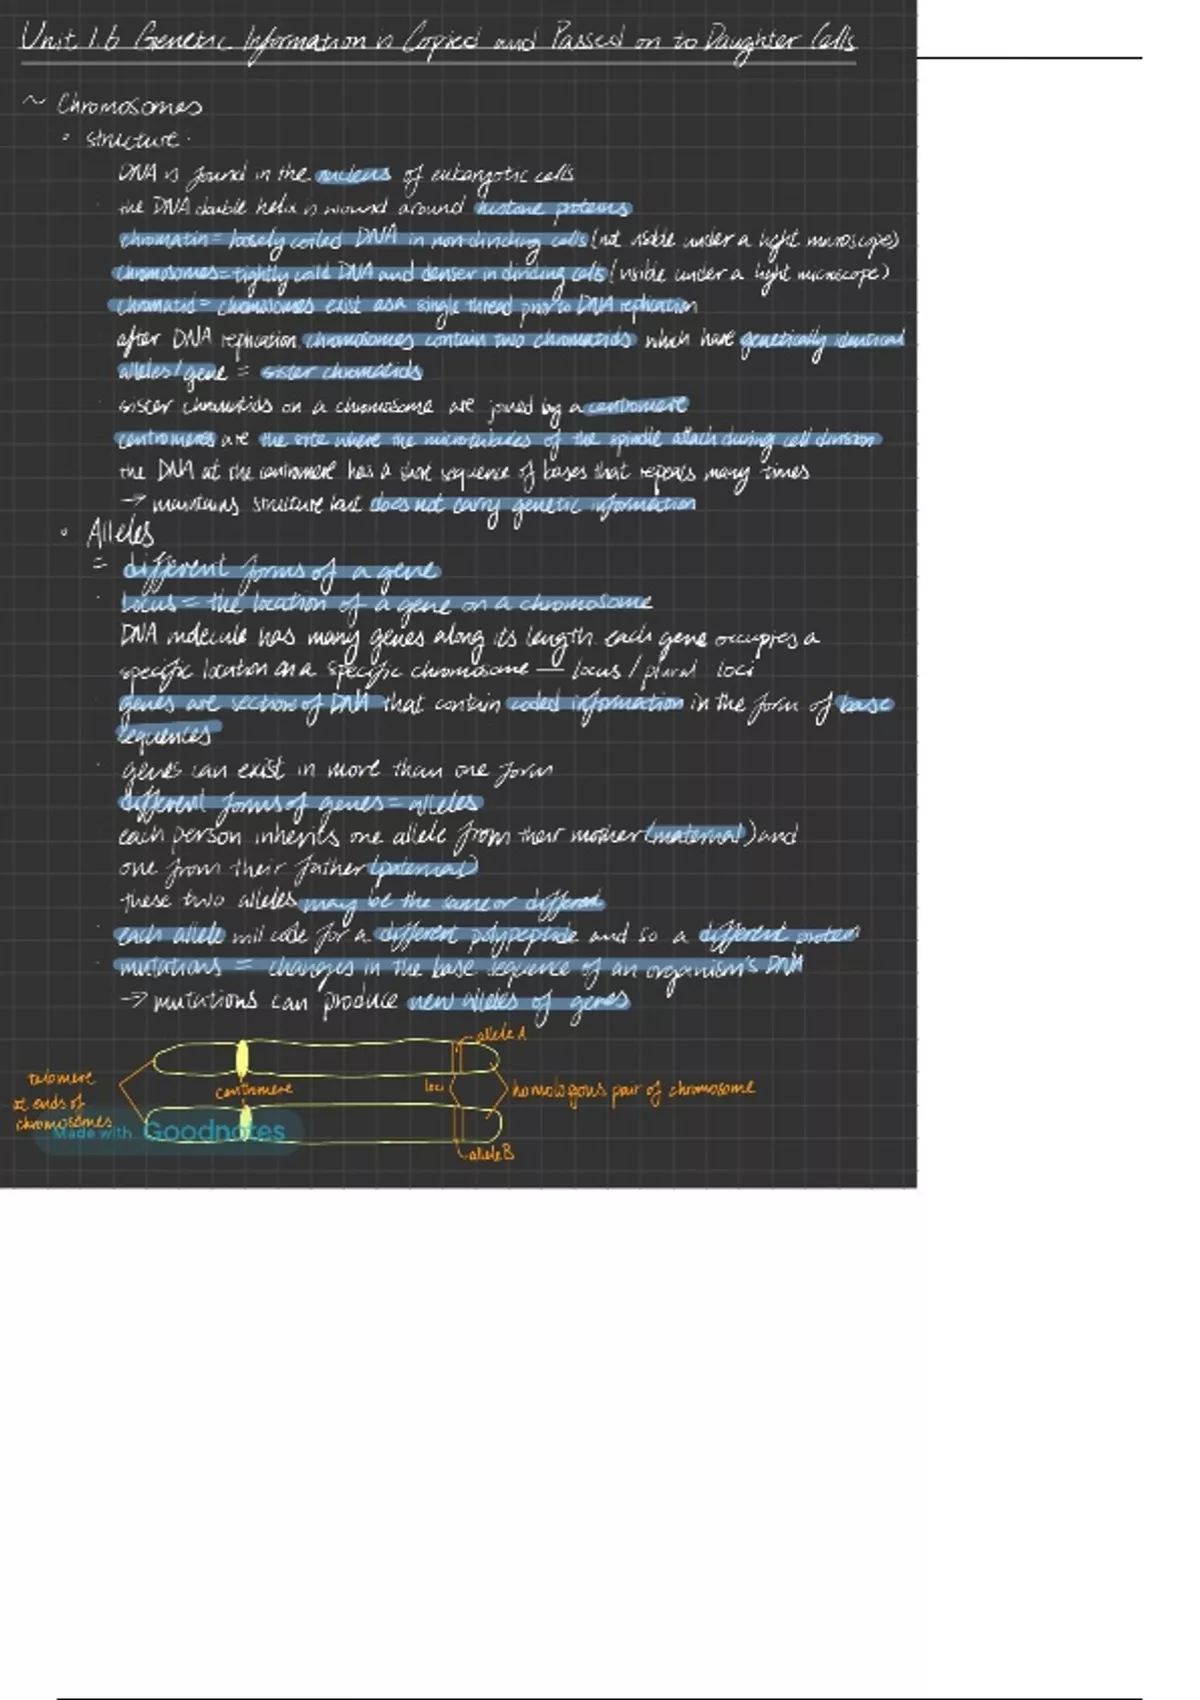 Unit 1.6 Genetic Information is Copied and Passed on to Daughter Cells
~ Chromosomes
• structure.
DNA is found in the nucleus of eukaryotic cells
the DNA double helix is wound around histone proteins
chromatin = loosely coiled DNA in non-dividing cells (not visible under a light microscope)
chromosomes = tightly coild DNA and denser in dividing cells (visible under a light microscope)
chromatid = chromosomes exist as a single thread prior to DNA replication
after DNA replication, chromosomes contain two chromatids which have genetically identical
alleles/gene = sister chromatids
sister chromatids on a chromosome are joined by a centromere
centromeres are the site where the microtubules of the spindle attach during cell division
the DNA at the centromere has a short sequence of bases that repeats many times
→ maintains structure but does not carry genetic information
• Alleles
= different forms of a gene
locus = the location of a gene on a chromosome
DNA molecule has many genes along its length. each gene occupies a
specific location on a specific chromosome — locus / plural loci
genes are section of DNA that contain coded information in the form of base
sequences
genes can exist in more than one form
different forms of genes = alleles
each person inherits one allele from their mother (maternal) and
one from their father (paternal)
these two alleles may be the same or different
each allele will code for a different polypeptide and so a different protein
mutations = changes in the base sequence of an organism's DNA
→ mutations can produce new alleles of genes
allele A
telomere
at ends of
chromosomes
centromere
loci
homologous pair of chromosome
allele B
Made with Goodnotes